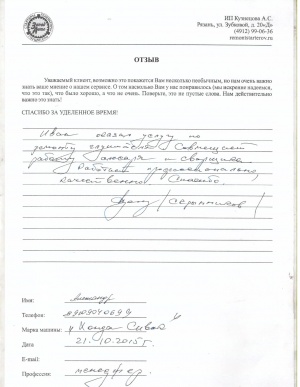 ИП Кузнецова А.С.
Рязань, ул. Зубковой, д. 20«Д»
(4912) 99-06-36
remontstarterov.ru
ОТЗЫВ
Уважаемый клиент, возможно это покажется Вам несколько необычным, но нам очень важно
знать ваше мнение о нашем сервисе. О том насколько Вам у нас понравилось (мы искренне надеемся,
что это так), что было хорошо, а что не очень. Поверьте, это не пустые слова. Нам действительно
важно это знать!
СПАСИБО ЗА УДЕЛЕННОЕ ВРЕМЯ!
Иван оказал услугу по
ремонту глушителя Совмещает
работу слесаря и сварщика
Работает профессионально,
качественно Спасибо.
Имя: Александр
Телефон:
Марка машины: Хонда Сивик
Дата 21.10.2015г.
E-mail:
Профессия: менеджер.